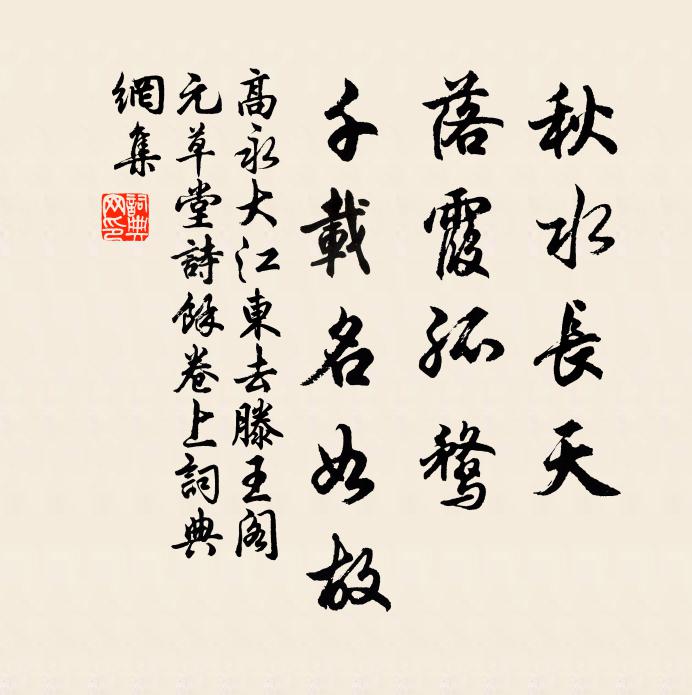 秋水長天
落霞孤鶩
千載名如故
高永大江東去滕王阁
元草堂詩餘卷上詞典
網集
詞典
网印